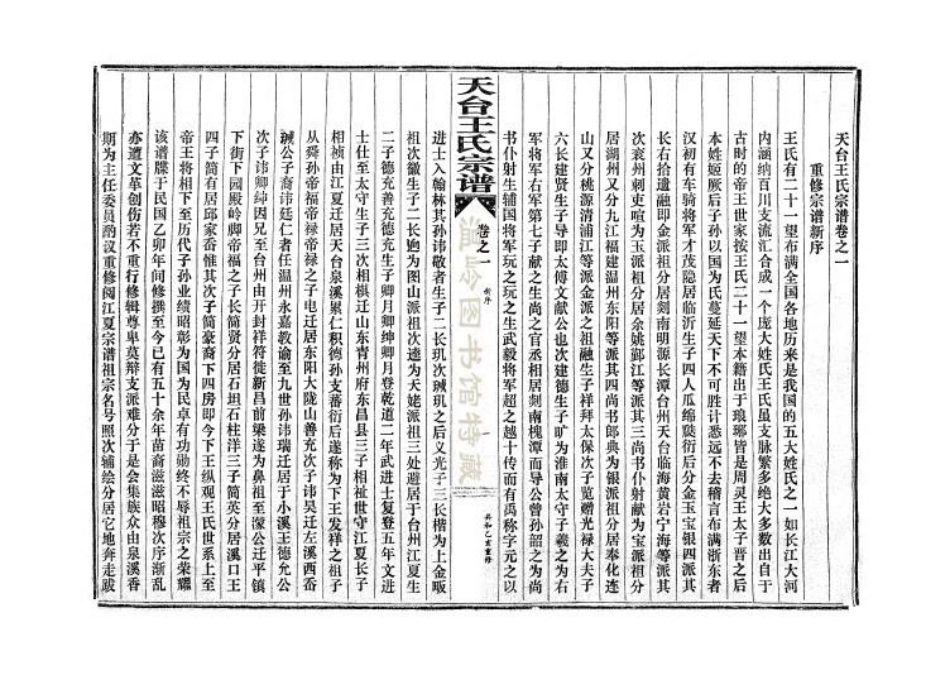 天台王氏宗谱卷之一
重修宗谱新序
王氏有二十一望布满全国各地历来是我国的五大姓氏之一如长江大河
内涵纳百川支流汇合成一个庞大姓氏王氏虽支脉繁多绝大多数出自于
古时的帝王世家按王氏二十一望本籍出于琅琊皆是周灵王太子晋之后
本姓姬厥后子孙以国为氏蔓延天下不可胜计悉远不去稽言布满浙东者
汉初有车骑将军才茂隐居临沂生子四人瓜绵瓞衍后分金玉宝银四派其
长右拾遗融即金派祖分居剡南明源长潭台州天台临海黄岩宁海等派其
次衮州刺史喧为玉派祖分居余姚鄞江等派其三尚书仆射献为宝派祖分
居湖州又分九江福建温州东阳等派其四尚书郎典为银派祖分居奉化连
山又分桃源清浦江等派金派之祖融生子祥拜太保次子览赠光禄大夫子
六长建贤生子导即太傅文献公也次建德生子旷为淮南太守子羲之为右
军将军右军第七子献之生尚之官丞相居剡南槐潭而导公曾孙韶之为尚
书仆射生辅国将军玩之玩之生武毅将军超之越十传而有禹称字元之以
天台王氏宗谱
卷之一
新序
共和乙亥重修
温岭图书馆特藏
进士入翰林其孙讳敬者生子二长玑次珹玑之后义光子三长楷为上金畈
祖次徽生子二长煦为图山派祖次逵为天姥派祖三处避居于台州江夏生
二子德充善充德充生子卿月卿绅卿月登乾道二年武进士复登五年文进
士仕至太守生子三次相棋迁山东青州府东昌县三子相祉世守江夏长子
相祯由江夏迁居天台泉溪累仁积德孙支蕃衍后遂称为下王发祥之祖子
从舜孙帝福帝禄帝禄之子电迁居东阳大陇山善充次子讳吴迁左溪西岙
珹公子裔讳廷仁者任温州永嘉教谕至九世孙讳瑞迁居于小溪王德允公
次子讳卿绅因兄至台州由开封祥符徙新昌前梁遂为鼻祖至蒙公迁平镇
下街下园殿岭卿帝福之子长简贤分居石坦石柱洋三子简英分居溪口王
四子简有居邱家岙惟其次子简豪裔下四房即今下王纵观王氏世系上至
帝王将相下至历代子孙业绩昭彰为国为民卓有功勋终不辱祖宗之荣耀
该谱牒于民国乙卯年间修撰至今已有五十余年苗裔滋滋昭穆次序渐乱
亦遭文革创伤若不重行修辑尊卑莫辩支派难分于是会集族众由泉溪香
期为主任委员酌议重修阅江夏宗谱祖宗名号照次辅绘分居它地奔走跋